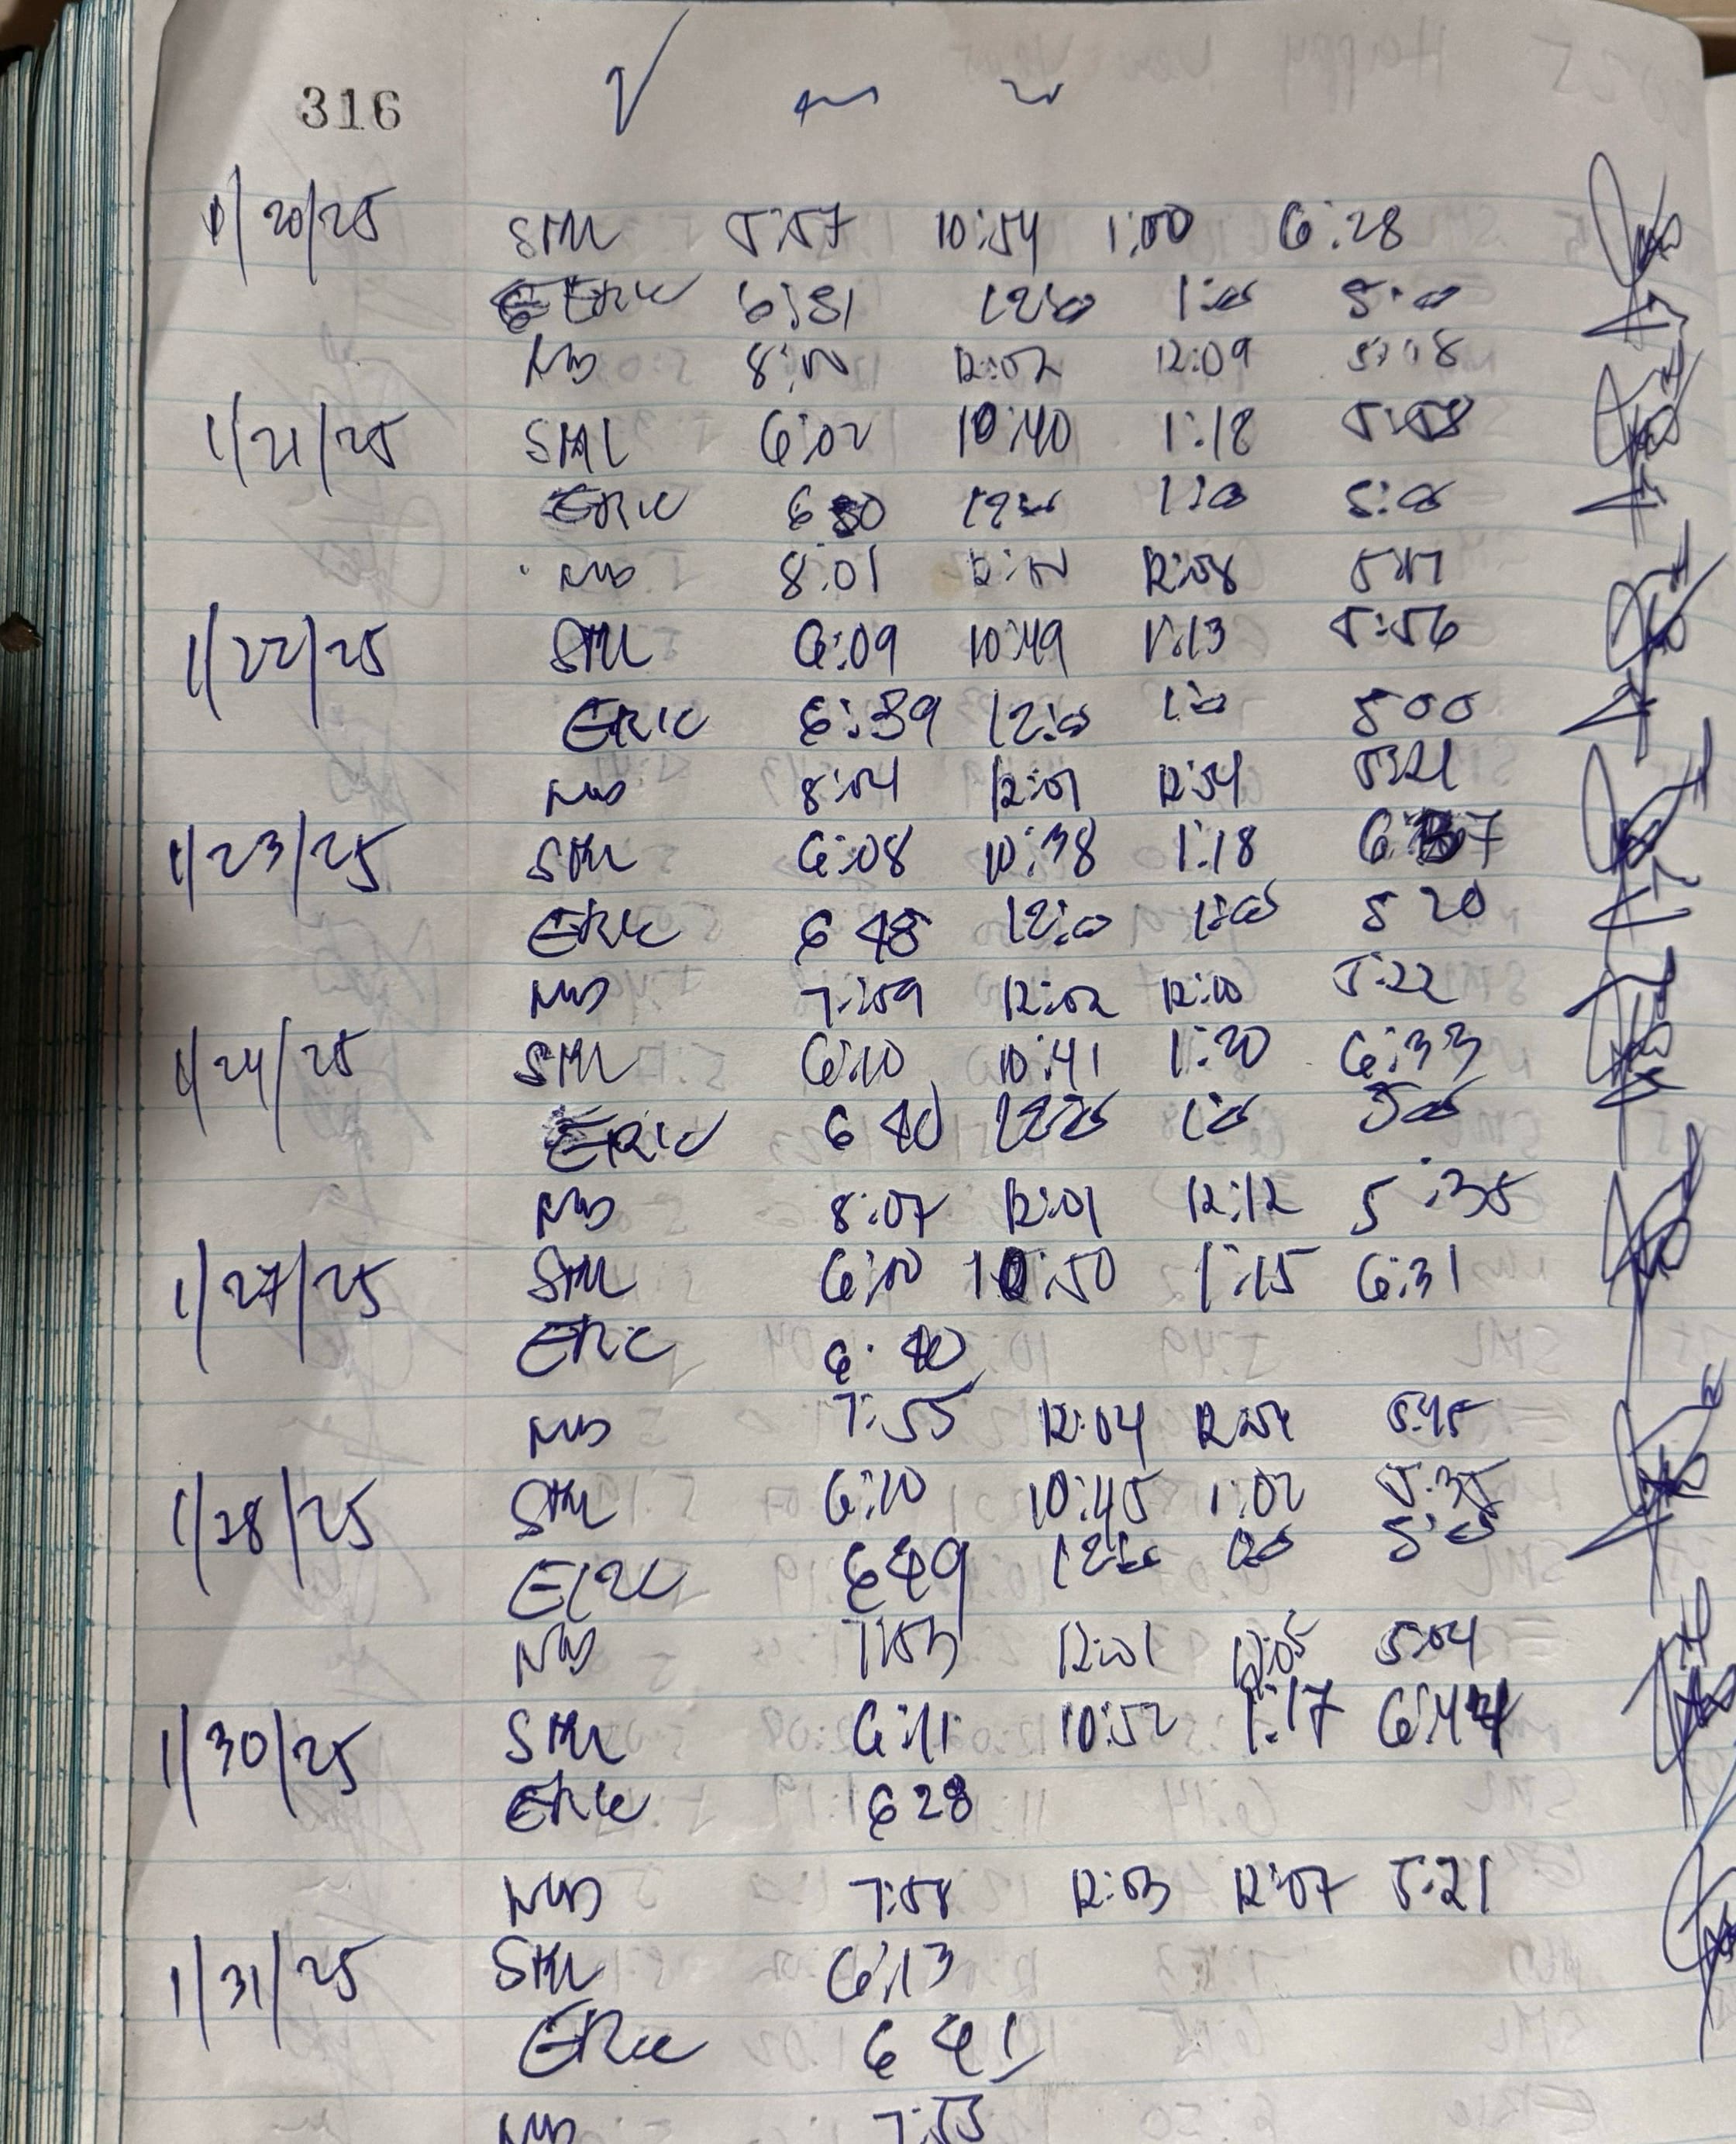 316
1/20/25 SML 5:57 10:54 1:00 6:28
ERIC 6:31 12:00 1:00 5:00
NB 8:00 12:02 12:09 5:18
1/21/25 SML 6:02 10:40 1:18 5:58
ERIC 6 30 12:00 1:00 5:00
NB 8:01 12:08
1/22/25 SML 6:09 10:49 1:13 5:56
ERIC 6:39 12:00 1:00 5 00
NB 8:04 12:01 12:54 5:21
1/23/25 SML 6:08 10:38 1:18
ERIC 6 48 12:00 1:00 5 20
NB 7:59 12:02 12:10 5:22
1/24/25 SML 6:10 10:41 1:20 6:33
ERIC 6 40 1:00 5 00
NB 8:07 12:01 12:12 5:35
1/27/25 SML 6:00 10:50 1:15 6:31
ERIC 6:40
NB 7:55 12:04 5:45
1/28/25 SML 6:10 10:45 1:02 5:35
ERIC 6 49 12:00 5:00
NB 7:53 12:01 12:05 5:04
1/30/25 SML 6:11 10:52 1:17 6:44
ERIC 6 28
NB 7:58 12:03 12:07 5:21
1/31/25 SML 6:13
ERIC 6 41
NB 7:53